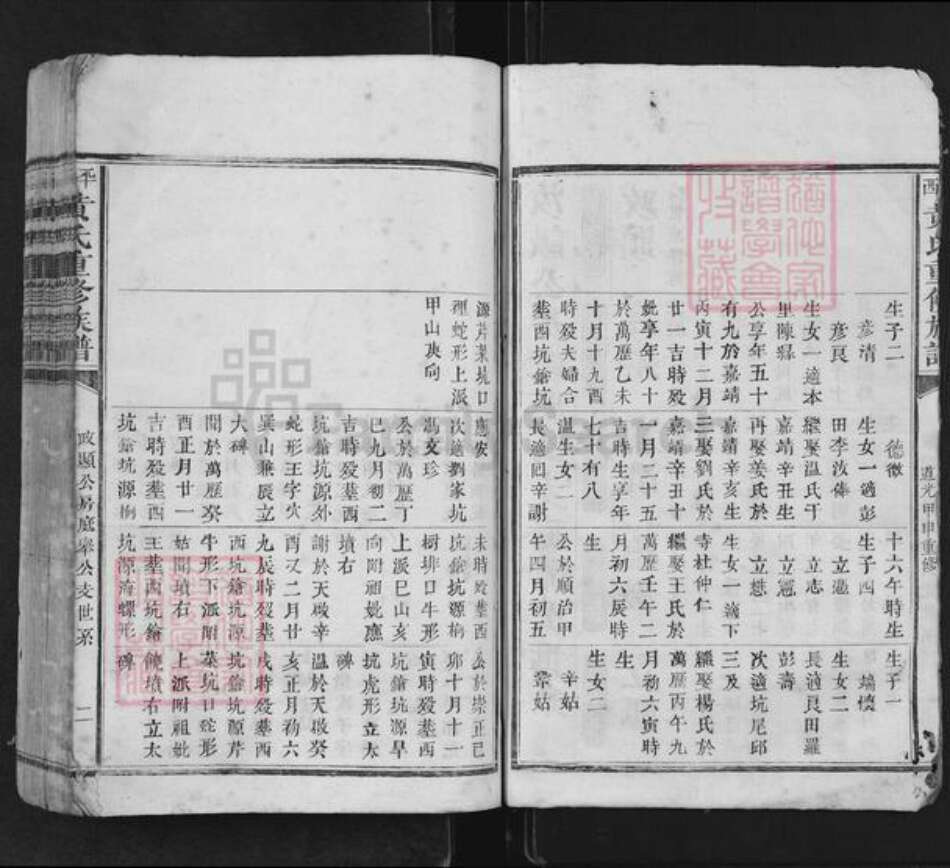 西黃氏重修族譜
道光甲申重修
生子二
彥清
彥良
生女一適本
里陳縣
公享年五十
有九於嘉靖
丙寅十二月
廿一吉時歿
妣享年八十
於萬歷乙未
十月十九酉
時歿夫婦合
塟酉坑鎗坑
德徵
生女一適彭
田李汝倳
繼娶温氏于
嘉靖辛丑生
再娶姜氏於
嘉靖辛亥生
三娶劉氏於
嘉靖辛丑十
一月二十五
吉時生享年
七十有八
温生女二
長適回辛謝
十六午時生
生子四
立憑
立志
立憲
立懋
生女一適下
寺杜仲仁
繼娶王氏於
萬歷壬午二
月初六辰時
生
公於順治甲
午四月初五
生子一
端懷
生女二
長適良田羅
彭壽
次適坑尾邱
三及
繼娶楊氏於
萬歷丙午九
月初六寅時
生
生女二
辛姑
鞏姑
源芹菜坑口
理蛇形上派
甲山庚向
應安
次適劉家坑
馮文珍
公於萬歷丁
巳九月初二
吉時歿塟西
坑鎗坑源外
蛇形王字穴
巽山兼辰立
大碑
閻於萬歷癸
酉正月廿一
吉時歿塟西
坑鎗坑源桐
未時歿塟西
坑鎗坑源桐
樹排口牛形
上派巳山亥
向附祖妣應
墳右
謝於天啟辛
酉又二月廿
九辰時歿塟
西坑鎗坑源
牛形下派附
姑閻墳右
王塟西坑鎗
坑源海螺形
公於崇正己
卯十月十一
寅時歿塟西
坑鎗坑源早
坑虎形立太
碑
温於天啟癸
亥正月初六
戌時歿塟西
坑鎗坑源芹
菜坑口蛇形
上派附祖妣
饒墳右立太
碑
平黃氏重修族譜
政顯公房庭舉公支世系
二